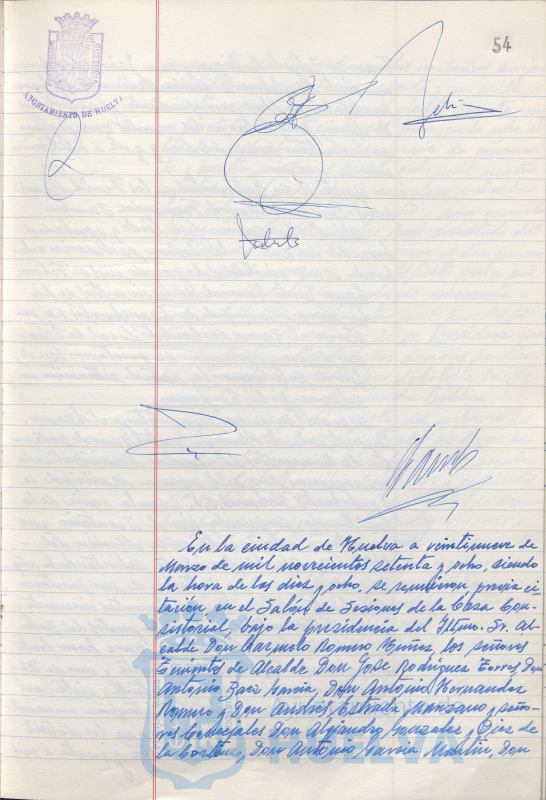 54
AYUNTAMIENTO DE HUELVA
En la ciudad de Huelva a veintinueve de
Marzo de mil novecientos setenta y ocho, siendo
la hora de las diez y ocho, se reunieron previa ci-
tación, en el Salón de Sesiones de la Casa Con-
sistorial, bajo la presidencia del Iltmo. Sr. Al-
calde Don Carmelo Romero Núñez, los señores
Tenientes de Alcalde Don José Rodríguez Torres, Don
Antonio Baez García, Don Antonio Hernandez
Romero y Don Andrés Estrada Manzano y seño-
res Concejales Don Alejandro Gonzalez y Diez de
la Cortina, Don Antonio García Martín, Don
HUELVA